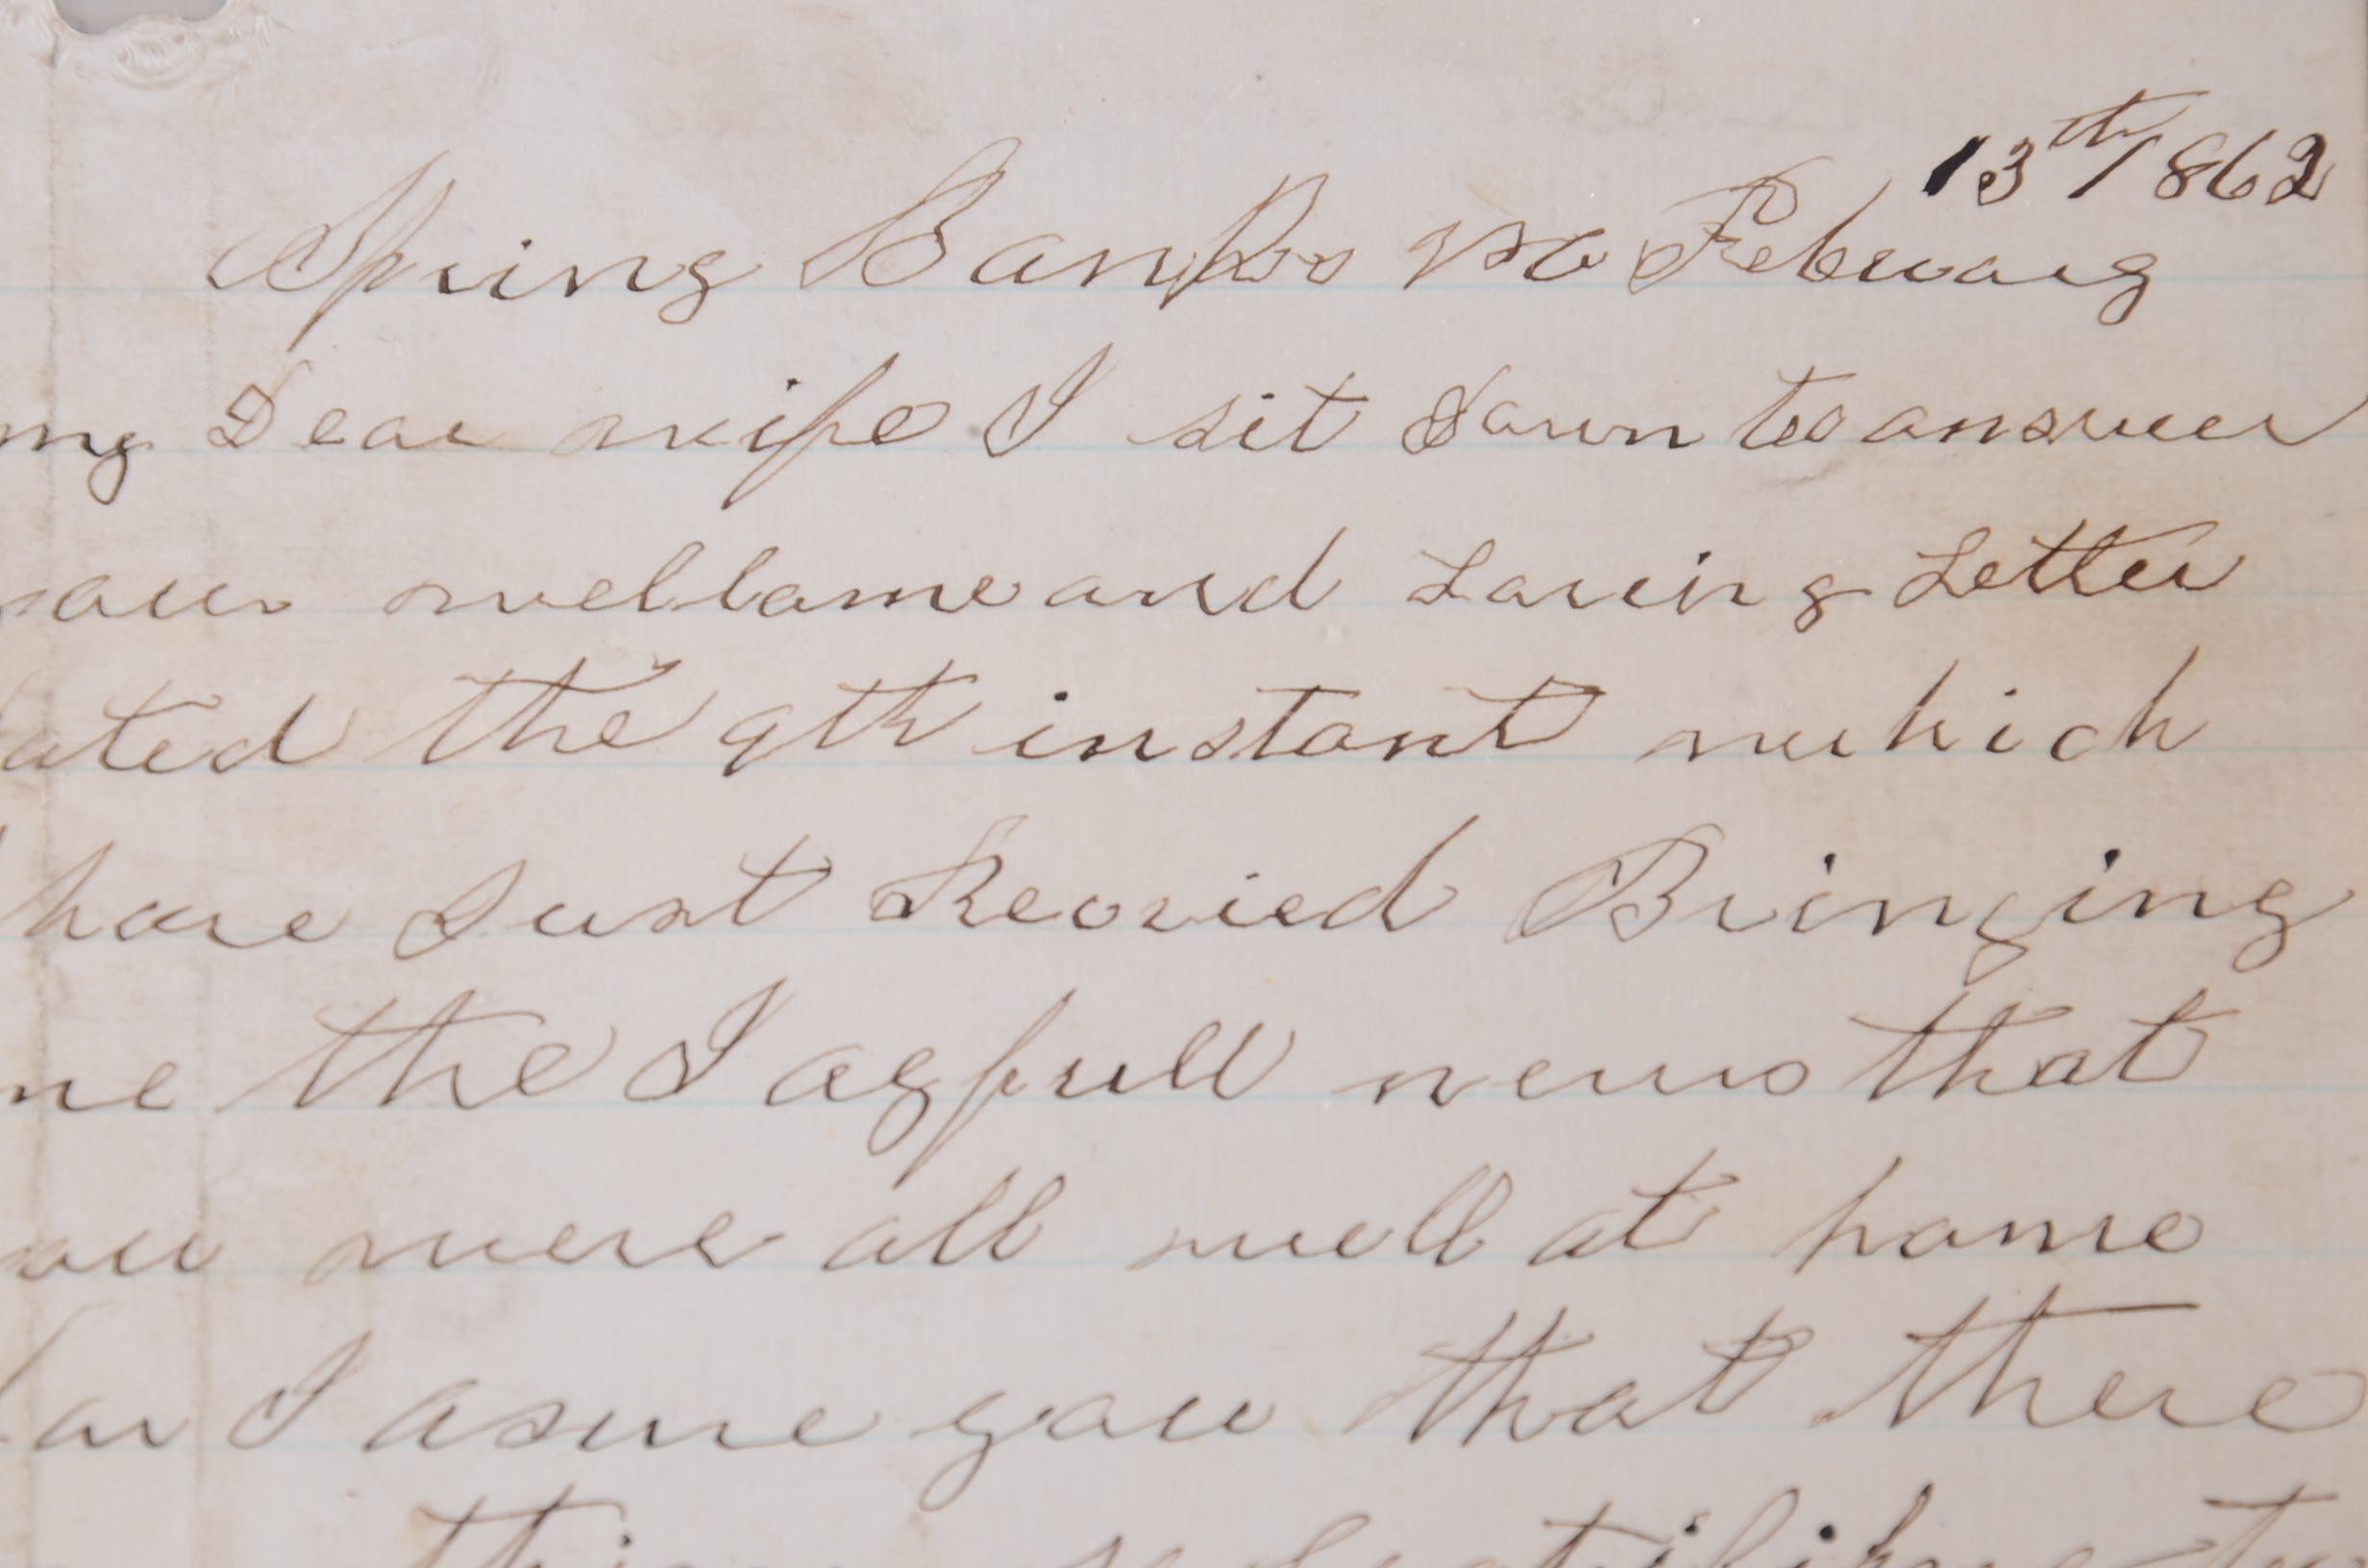 Spring Banks va Februarg 13th 1862
my Dear wife I sit down to answer
your wellcome and Loving Letter
dated the 9th instant which
have Just Recvied Bringing
me the Joyfull news that
you were all well at home
for I asure you that there